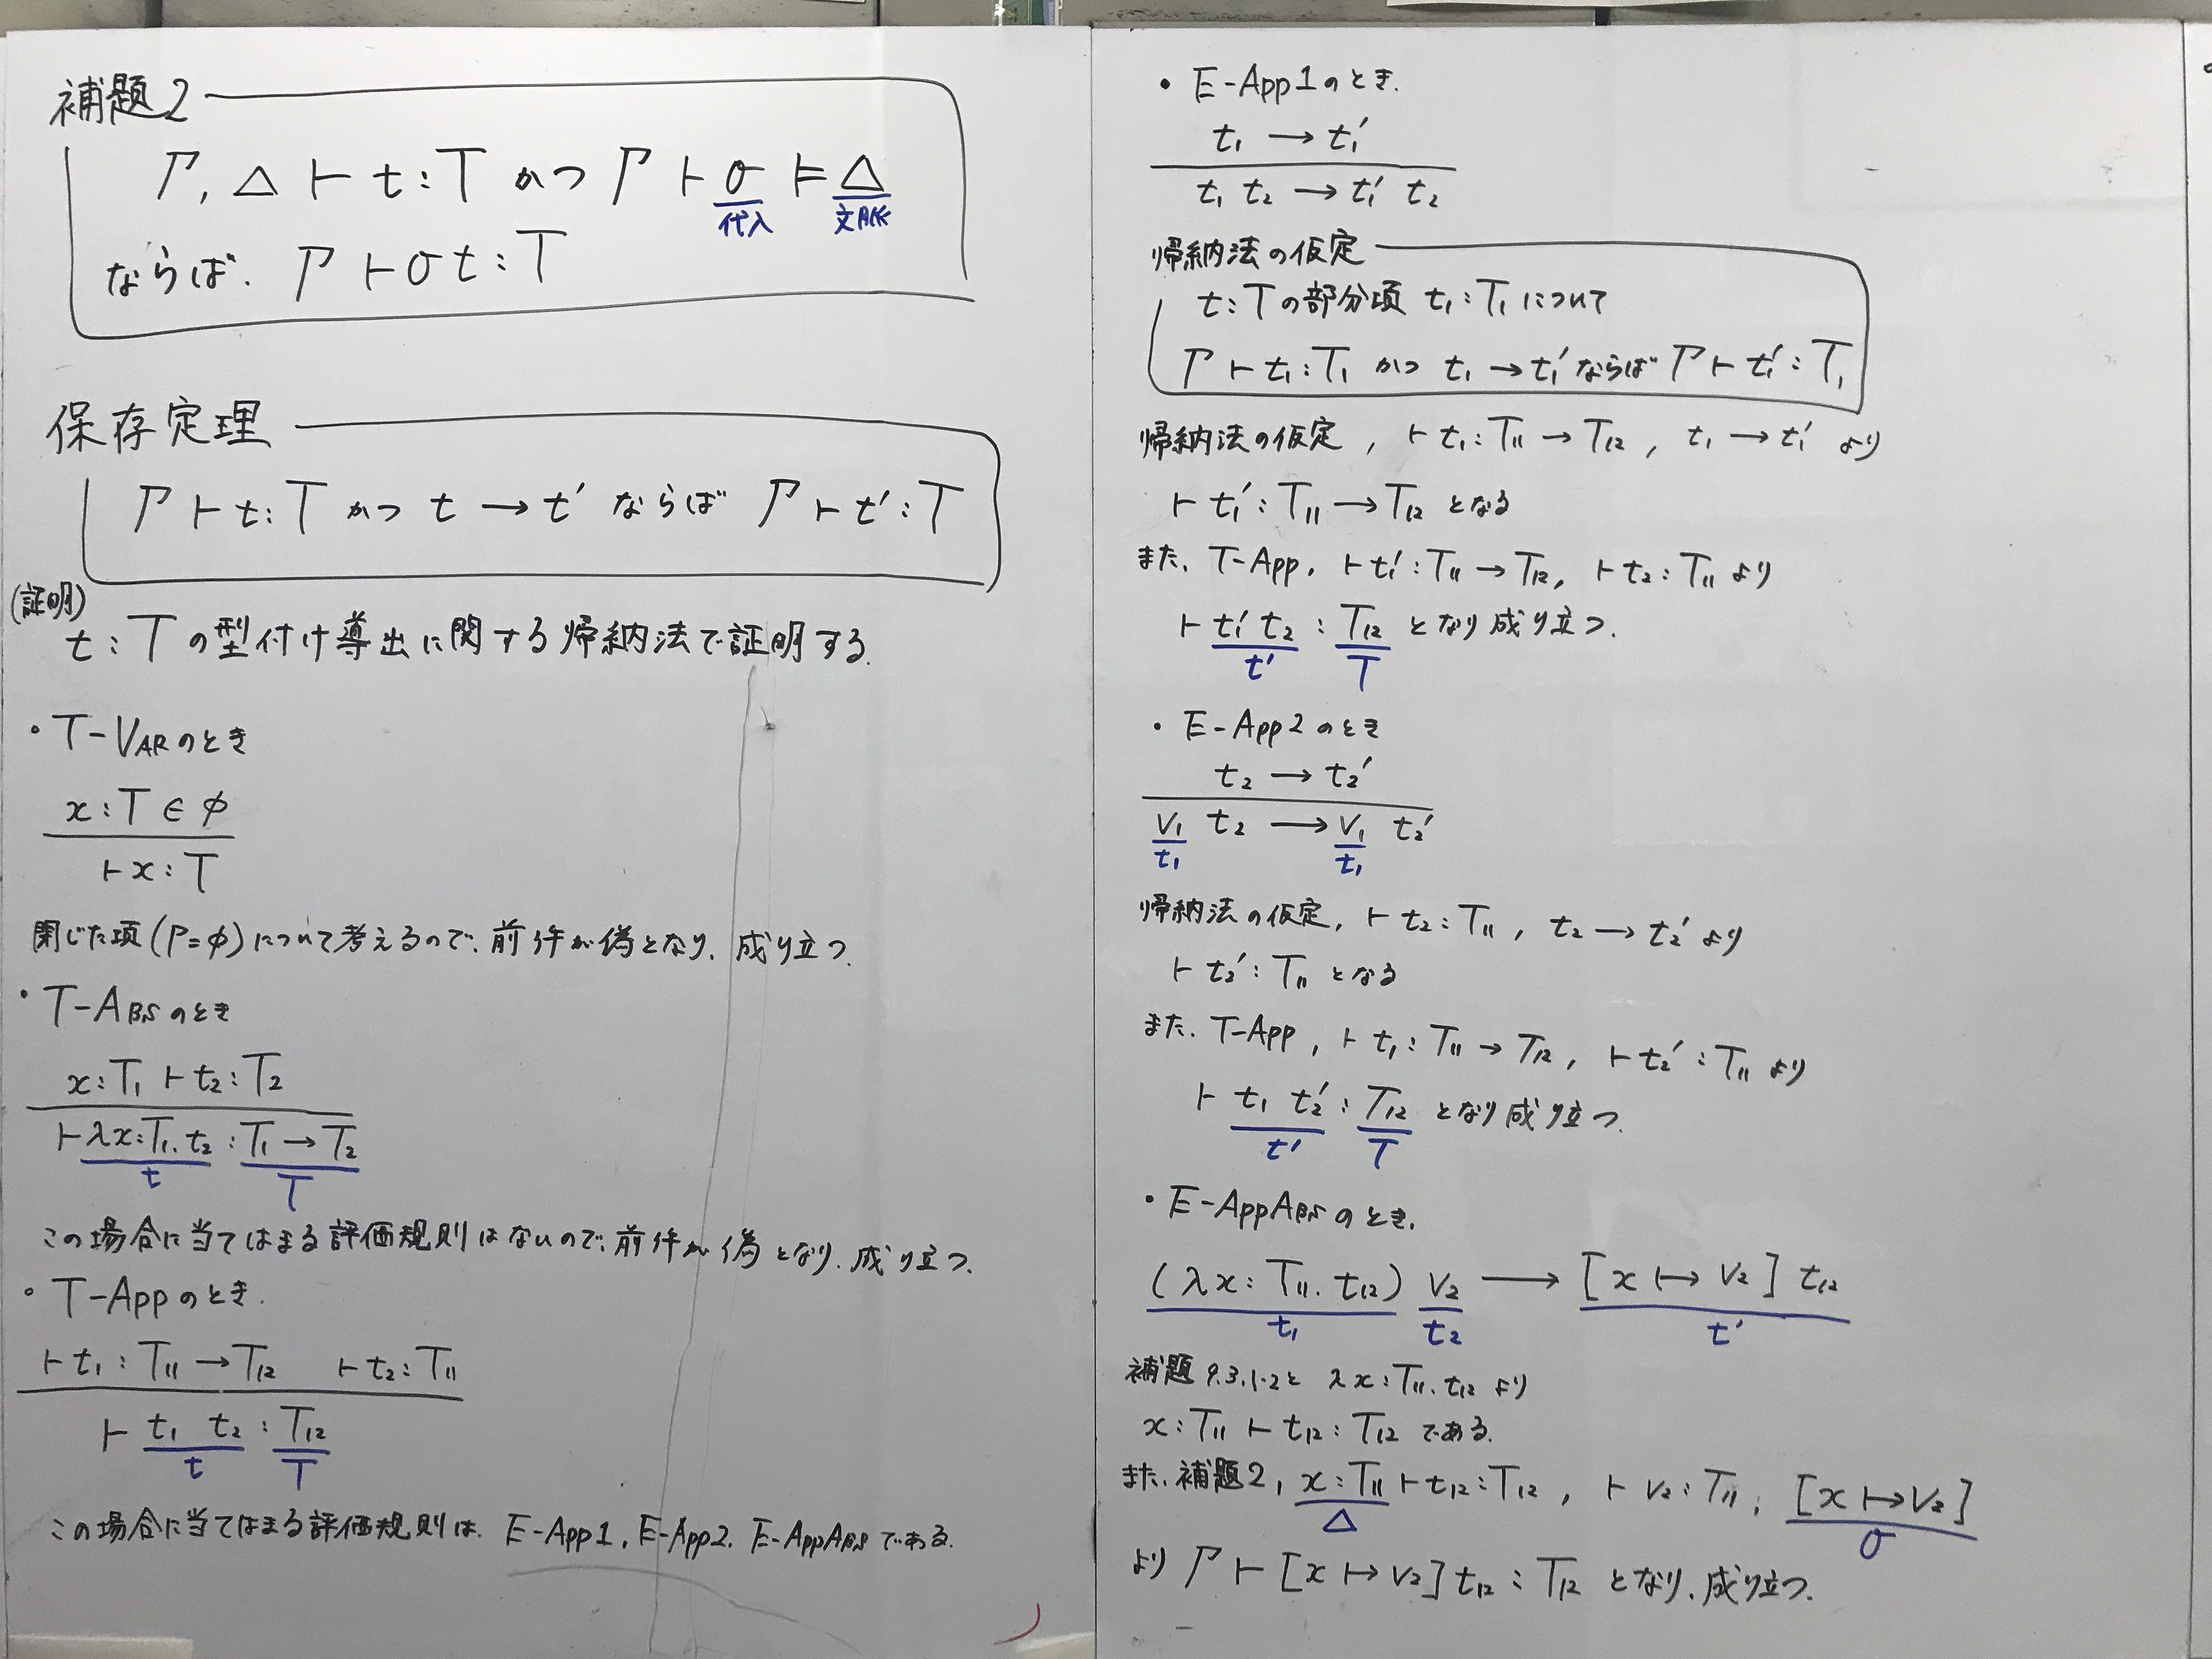 補題2
Γ, Δ ⊢ t : T かつ Γ ⊢ σ ⊨ Δ
代入 文脈
ならば. Γ ⊢ σt : T
保存定理
Γ ⊢ t : T かつ t → t' ならば Γ ⊢ t' : T
(証明)
t : T の型付け導出に関する帰納法で証明する.
・T-VARのとき
x : T ∈ φ
⊢ x : T
閉じた項 (Γ=φ) について考えるので、前件が偽となり、成り立つ.
・T-ABSのとき
x : T₁ ⊢ t₂ : T₂
⊢ λx:T₁. t₂ : T₁ → T₂
t T
この場合に当てはまる評価規則はないので、前件が偽となり、成り立つ.
・T-Appのとき.
⊢ t₁ : T₁₁ → T₁₂ ⊢ t₂ : T₁₁
⊢ t₁ t₂ : T₁₂
t T
この場合に当てはまる評価規則は、E-App1, E-App2, E-AppABSである.
・E-App1のとき.
t₁ → t₁'
t₁ t₂ → t₁' t₂
帰納法の仮定
t : T の部分項 t₁ : T₁ について
Γ ⊢ t₁ : T₁ かつ t₁ → t₁' ならば Γ ⊢ t₁' : T₁
帰納法の仮定, ⊢ t₁ : T₁₁ → T₁₂, t₁ → t₁' より
⊢ t₁' : T₁₁ → T₁₂ となる
また、T-App, ⊢ t₁' : T₁₁ → T₁₂, ⊢ t₂ : T₁₁ より
⊢ t₁' t₂ : T₁₂ となり成り立つ.
t' T
・E-App2のとき
t₂ → t₂'
v₁ t₂ → v₁ t₂'
t₁ t₁
帰納法の仮定, ⊢ t₂ : T₁₁, t₂ → t₂' より
⊢ t₂' : T₁₁ となる
また、T-App, ⊢ t₁ : T₁₁ → T₁₂, ⊢ t₂' : T₁₁ より
⊢ t₁ t₂' : T₁₂ となり成り立つ.
t' T
・E-AppABSのとき.
(λx : T₁₁. t₁₂) v₂ → [x ↦ v₂] t₁₂
t₁ t₂ t'
補題 9.3.1-2と λx : T₁₁. t₁₂ より
x : T₁₁ ⊢ t₁₂ : T₁₂ である.
また、補題2, x : T₁₁ ⊢ t₁₂ : T₁₂, ⊢ v₂ : T₁₁, [x ↦ v₂]
Δ σ
より Γ ⊢ [x ↦ v₂] t₁₂ : T₁₂ となり、成り立つ.